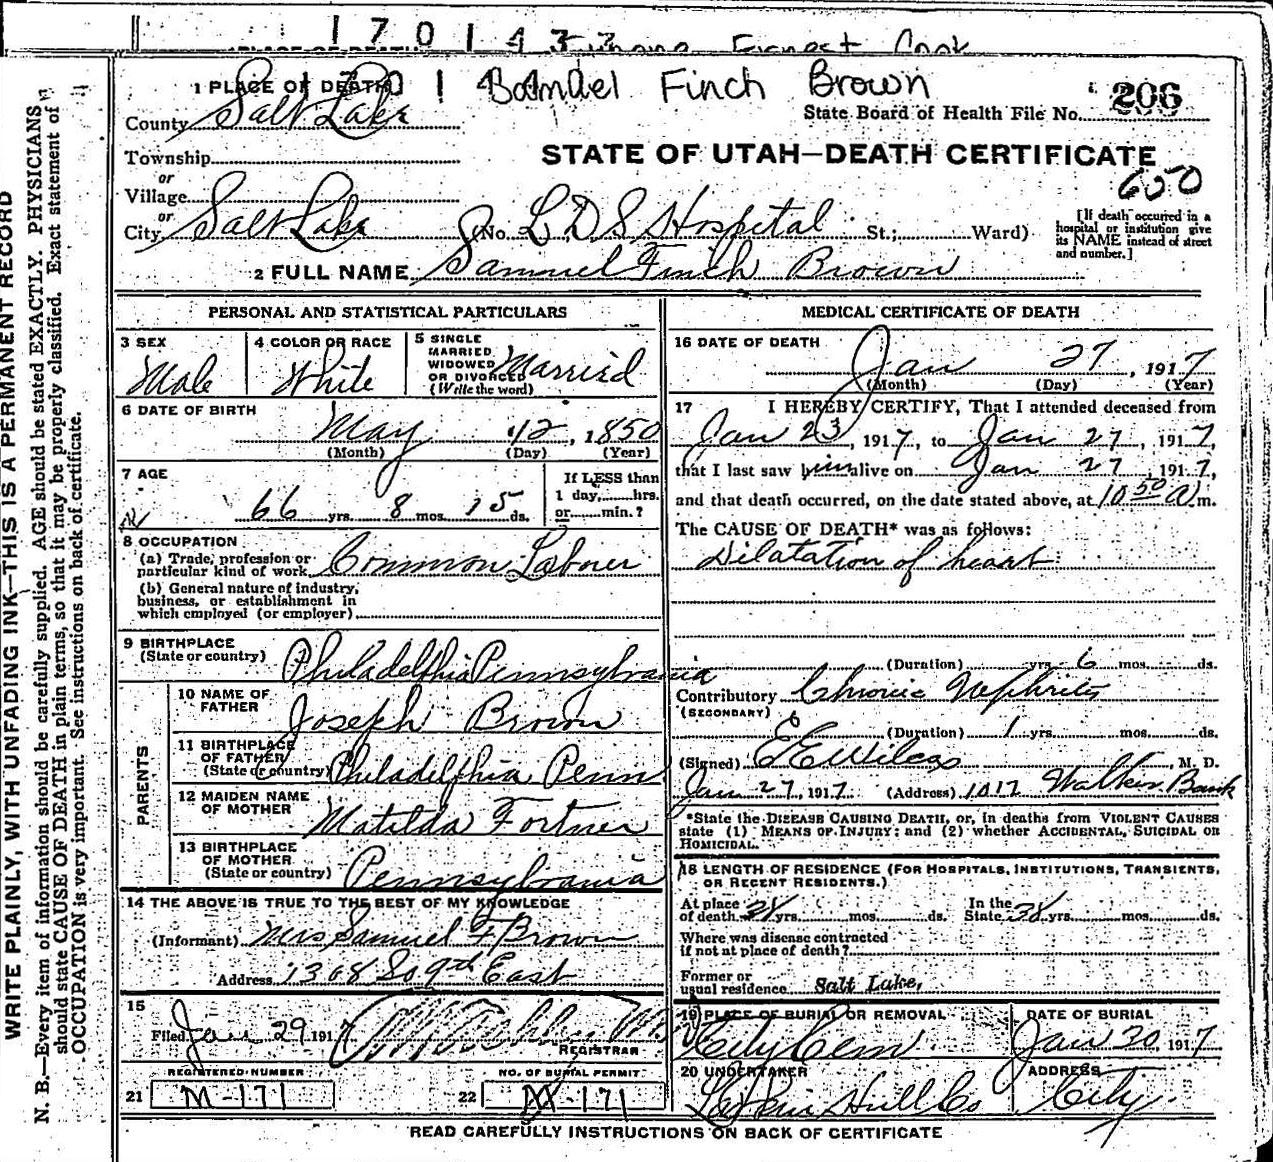 1 7 0 1 4 3
Ernest Cook
1 PLACE OF DEATH
Finch Brown
206
County Salt Lake
State Board of Health File No.
Township
STATE OF UTAH—DEATH CERTIFICATE
or
650
Village
or
City Salt Lake (No. L D S Hospital St.; Ward)
[If death occurred in a hospital or institution give its NAME instead of street and number.]
2 FULL NAME Samuel Finch Brown
PERSONAL AND STATISTICAL PARTICULARS
3 SEX
Male
4 COLOR OR RACE
White
5 SINGLE
MARRIED
WIDOWED
OR DIVORCED
(Write the word)
Married
6 DATE OF BIRTH
May 12, 1850
(Month) (Day) (Year)
7 AGE
66 yrs. 8 mos. 15 ds.
If LESS than
1 day, hrs.
or min.?
8 OCCUPATION
(a) Trade, profession or
particular kind of work Common Laborer
(b) General nature of industry,
business, or establishment in
which employed (or employer)
9 BIRTHPLACE
(State or country) Philadelphia Pennsylvania
PARENTS
10 NAME OF
FATHER
Joseph Brown
11 BIRTHPLACE
OF FATHER
(State or country) Philadelphia Penn
12 MAIDEN NAME
OF MOTHER
Matilda Fortner
13 BIRTHPLACE
OF MOTHER
(State or country) Pennsylvania
14 THE ABOVE IS TRUE TO THE BEST OF MY KNOWLEDGE
(Informant) Mrs Samuel F Brown
Address 1308 So 9th East
15
Filed Jan 29 1917
REGISTRAR
REGISTERED NUMBER
21 M-171
NO. OF BURIAL PERMIT
22 M-171
MEDICAL CERTIFICATE OF DEATH
16 DATE OF DEATH
Jan 27, 1917
(Month) (Day) (Year)
17 I HEREBY CERTIFY, That I attended deceased from
Jan 23, 1917, to Jan 27, 1917,
that I last saw him alive on Jan 27, 1917,
and that death occurred, on the date stated above, at 10 50 A m.
The CAUSE OF DEATH* was as follows:
Dilatation of heart
(Duration) yrs. 6 mos. ds.
Contributory Chronic Nephritis
(SECONDARY)
(Duration) 1 yrs. mos. ds.
(Signed) E E Wilcox, M. D.
Jan 27, 1917. (Address) 1017 Walker Bank
*State the DISEASE CAUSING DEATH, or, in deaths from VIOLENT CAUSES
state (1) MEANS OF INJURY; and (2) whether ACCIDENTAL, SUICIDAL OR
HOMICIDAL.
18 LENGTH OF RESIDENCE (FOR HOSPITALS, INSTITUTIONS, TRANSIENTS,
OR RECENT RESIDENTS.)
At place
of death yrs. mos. ds.
In the
State 38 yrs. mos. ds.
Where was disease contracted
if not at place of death?
Former or
usual residence Salt Lake,
19 PLACE OF BURIAL OR REMOVAL
City Cem.
DATE OF BURIAL
Jan 30, 1917
20 UNDERTAKER
Hull Co
ADDRESS
City
READ CAREFULLY INSTRUCTIONS ON BACK OF CERTIFICATE
WRITE PLAINLY, WITH UNFADING INK—THIS IS A PERMANENT RECORD
N. B.—Every item of information should be carefully supplied. AGE should be stated EXACTLY. PHYSICIANS
should state CAUSE OF DEATH in plain terms, so that it may be properly classified. Exact statement of
OCCUPATION is very important. See instructions on back of certificate.